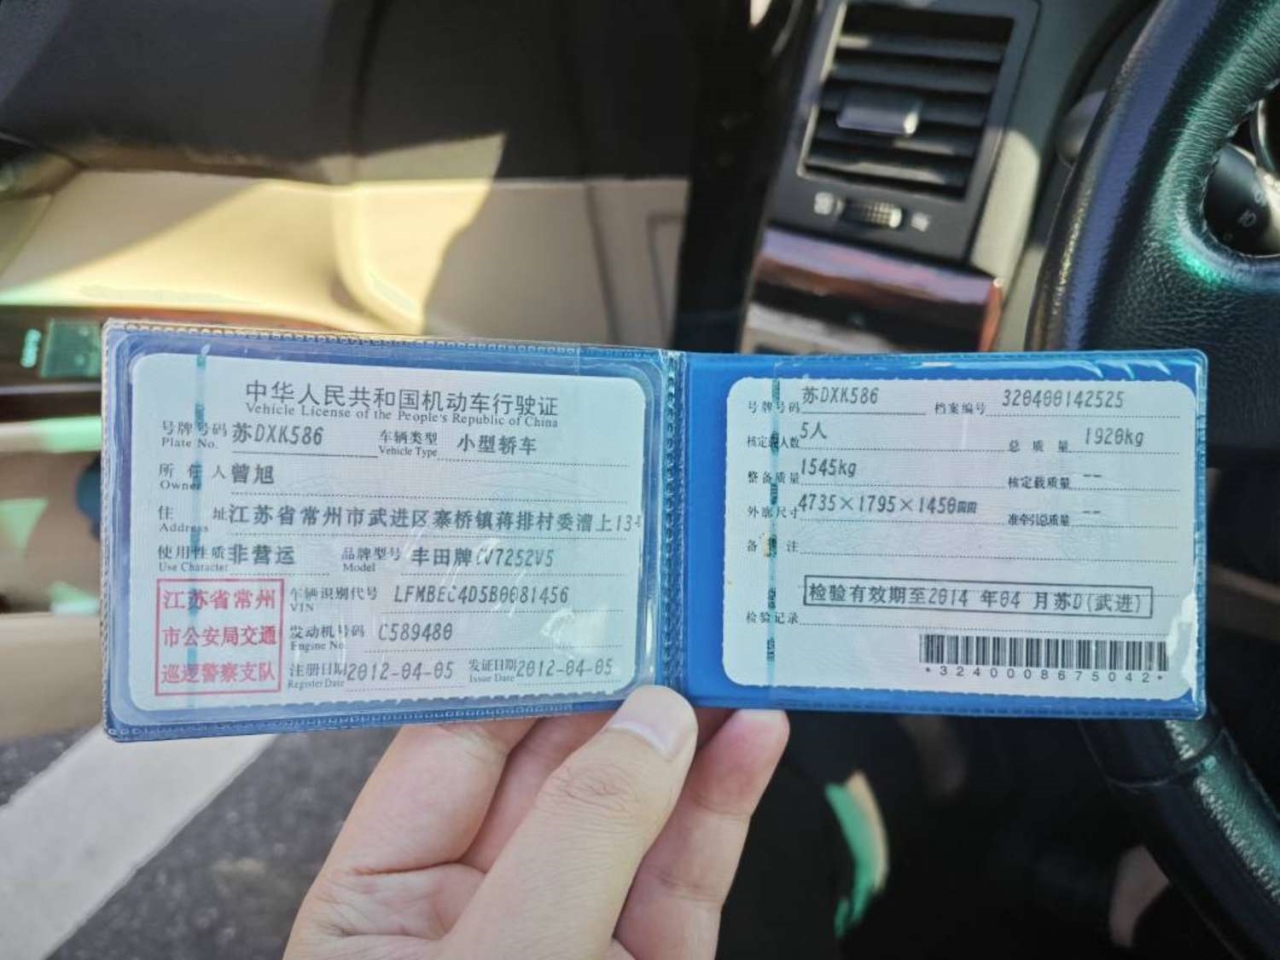 中华人民共和国机动车行驶证
Vehicle License of the People's Republic of China
号牌号码 苏DXK586 车辆类型 小型轿车
Plate No. Vehicle Type
所有人 曾旭
Owner
住 址 江苏省常州市武进区寨桥镇蒋排村委漕上13
Address
使用性质 非营运 品牌型号 丰田牌 V7252V5
Use Character Model
江苏省常州
市公安局交通
巡逻警察支队
车辆识别代号 LFMBEC4D5B0081456
VIN
发动机号码 C589480
Engine No.
注册日期 2012-04-05 发证日期 2012-04-05
Register Date Issue Date
号牌号码 苏DXK586 档案编号 320400142525
核定载人数 5人 总 质 量 1920kg
整备质量 1545kg 核定载质量 --
外廓尺寸 4735×1795×1450mm 准牵引总质量 --
备 注
检验有效期至2014 年04 月苏D(武进)
检验记录
*3240008675042*